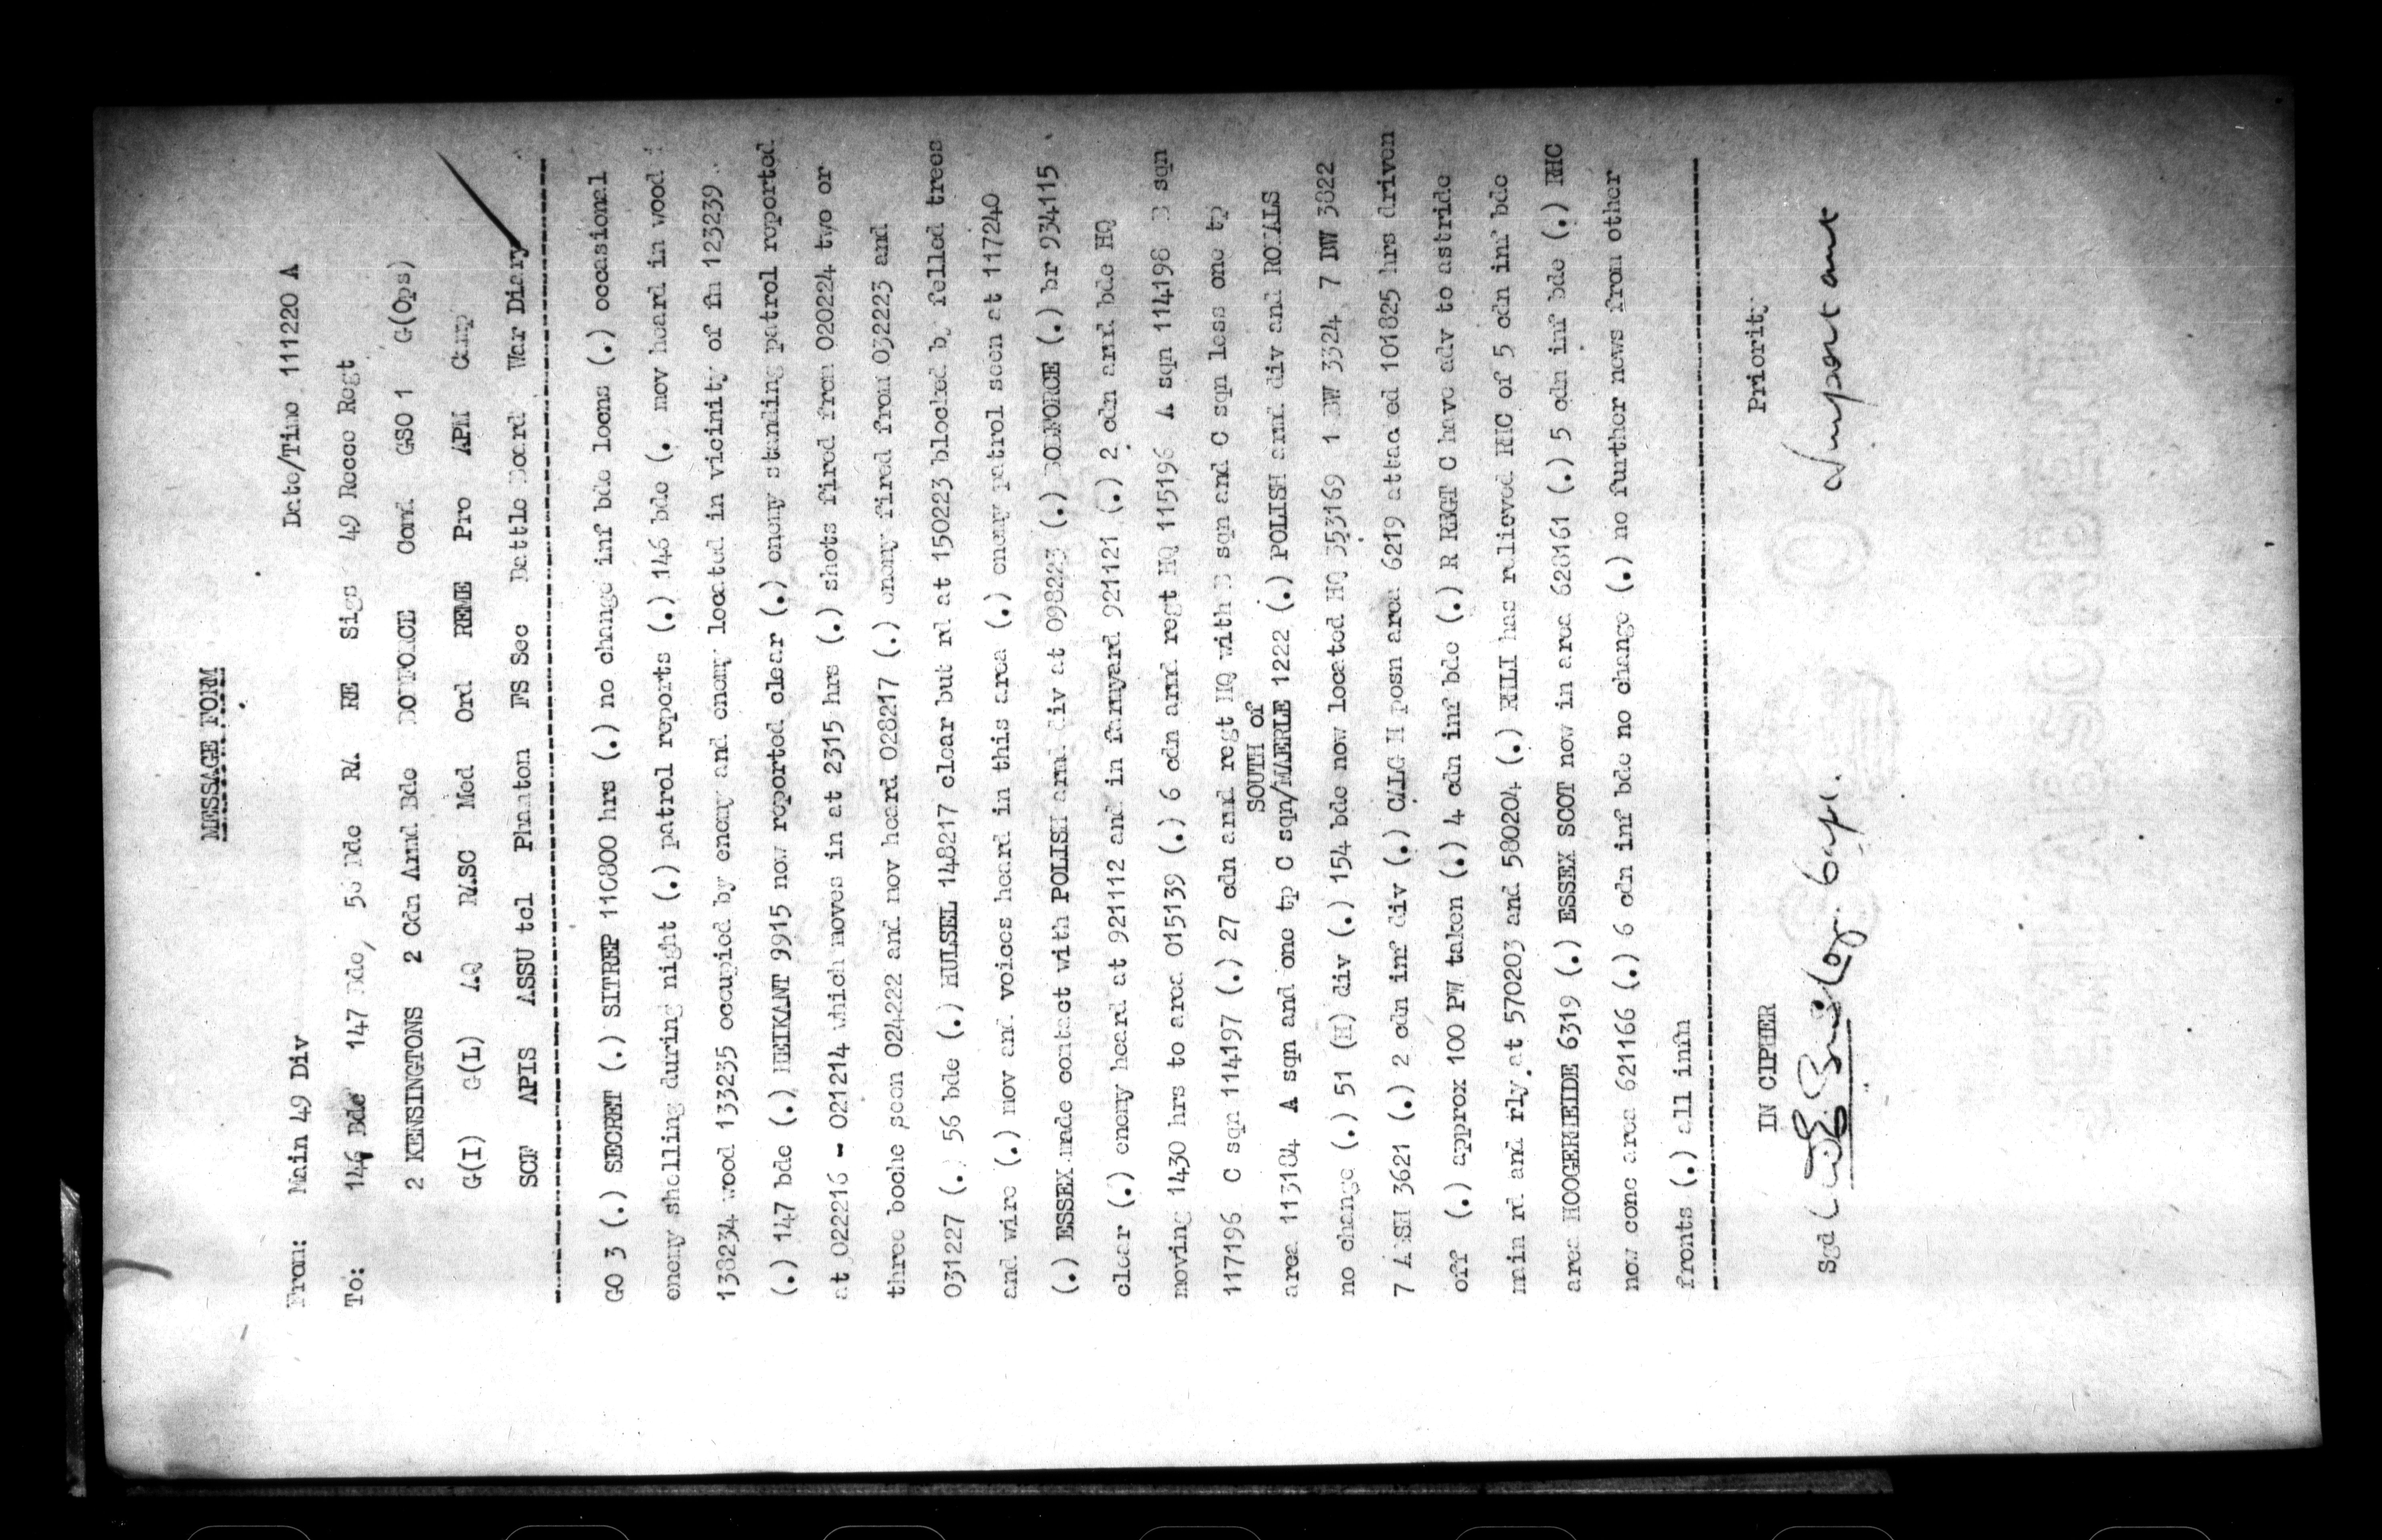 MESSAGE FORM
From: Main 49 Div Date/Time 111220 A
To: 146 Bde 147 Bde, 56 Bde RA RE Sigs 49 Recce Regt
2 KENSINGTONS 2 Cdn Armd Bde BOBFORCE Comd GSO 1 G(Ops)
G(I) G(L) AQ RASC Med Ord REME Pro APM Camp
SCF APIS ASSU tcl Phantom FS Sec Battle Board War Diary
GO 3 (.) SECRET (.) SITREP 110800 hrs (.) no change inf bde locns (.) occasional
enemy shelling during night (.) patrol reports (.) 146 bde (.) mov heard in wood
138234 wood 133235 occupied by enemy and enemy located in vicinity of fm 123239
(.) 147 bde (.) HEIKANT 9915 now reported clear (.) enemy standing patrol reported
at 022216 - 021214 which moves in at 2315 hrs (.) shots fired from 020224 two or
three boche seen 024222 and mov heard 028217 (.) enemy fired from 032223 and
031227 (.) 56 bde (.) HULSEL 148217 clear but rd at 150223 blocked by felled trees
and wire (.) mov and voices heard in this area (.) enemy patrol seen at 117240
(.) ESSEX made contact with POLISH armd div at 098223 (.) BOBFORCE (.) br 934115
clear (.) enemy heard at 921112 and in farmyard 921121 (.) 2 cdn armd bde HQ
moving 1430 hrs to area 015139 (.) 6 cdn armd regt HQ 115196 A sqn 114198 B sqn
117196 C sqn 114197 (.) 27 cdn armd regt HQ with B sqn and C sqn less one tp
SOUTH of
area 113184 A sqn and one tp C sqn/MAERLE 1222 (.) POLISH armd div and ROYALS
no change (.) 51 (H) div (.) 154 bde now located HQ 353169 1 BW 3324 7 BW 3822
7 A&SH 3621 (.) 2 cdn inf div (.) CALG H posn area 6219 attacked 101825 hrs driven
off (.) approx 100 PW taken (.) 4 cdn inf bde (.) R REGT C have adv to astride
main rd and rly at 570203 and 580204 (.) RHLI has relieved RHC of 5 cdn inf bde
area HOOGERHEIDE 6319 (.) ESSEX SCOT now in area 628161 (.) 5 cdn inf bde (.) RHC
now conc area 621166 (.) 6 cdn inf bde no change (.) no further news from other
fronts (.) all infm
IN CIPHER Priority
Sgd Capt. Important